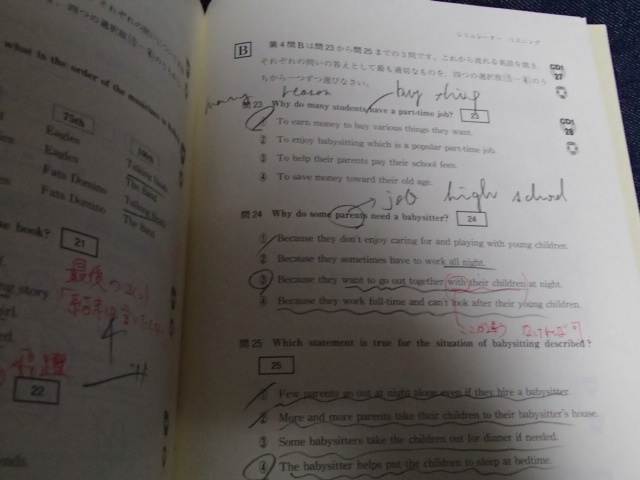 それぞれの問いについて
四つの選択肢(①~④)
what is the order of the musicians in
75th
100th
Eagles
Eagles
Talking Heads
Fats Domino
The Band
Fats Domino
Talking Heads
The Band
book?
21
最後の
ing story
girl.
ed.
4
22
onds.
シミュレーター リスニング
B
第4問Bは問23から問25までの3問です。これから流れる英語を聞き、
それぞれの問いの答えとして最も適切なものを、四つの選択肢(①~④)のう
ちから一つずつ選びなさい。
CD1
27
many reason
buy thing
問23 Why do many students have a part-time job?
23
CD1
28
① To earn money to buy various things they want.
② To enjoy babysitting which is a popular part-time job.
③ To help their parents pay their school fees.
④ To save money toward their old age.
job high school
問24 Why do some parents need a babysitter?
24
① Because they don't enjoy caring for and playing with young children.
② Because they sometimes have to work all night.
③ Because they want to go out together with their children at night.
④ Because they work full-time and can't look after their young children.
ここが なければ可
問25 Which statement is true for the situation of babysitting described?
25
① Few parents go out at night alone even if they hire a babysitter.
② More and more parents take their children to their babysitter's house.
③ Some babysitters take the children out for dinner if needed.
④ The babysitter helps put the children to sleep at bedtime.